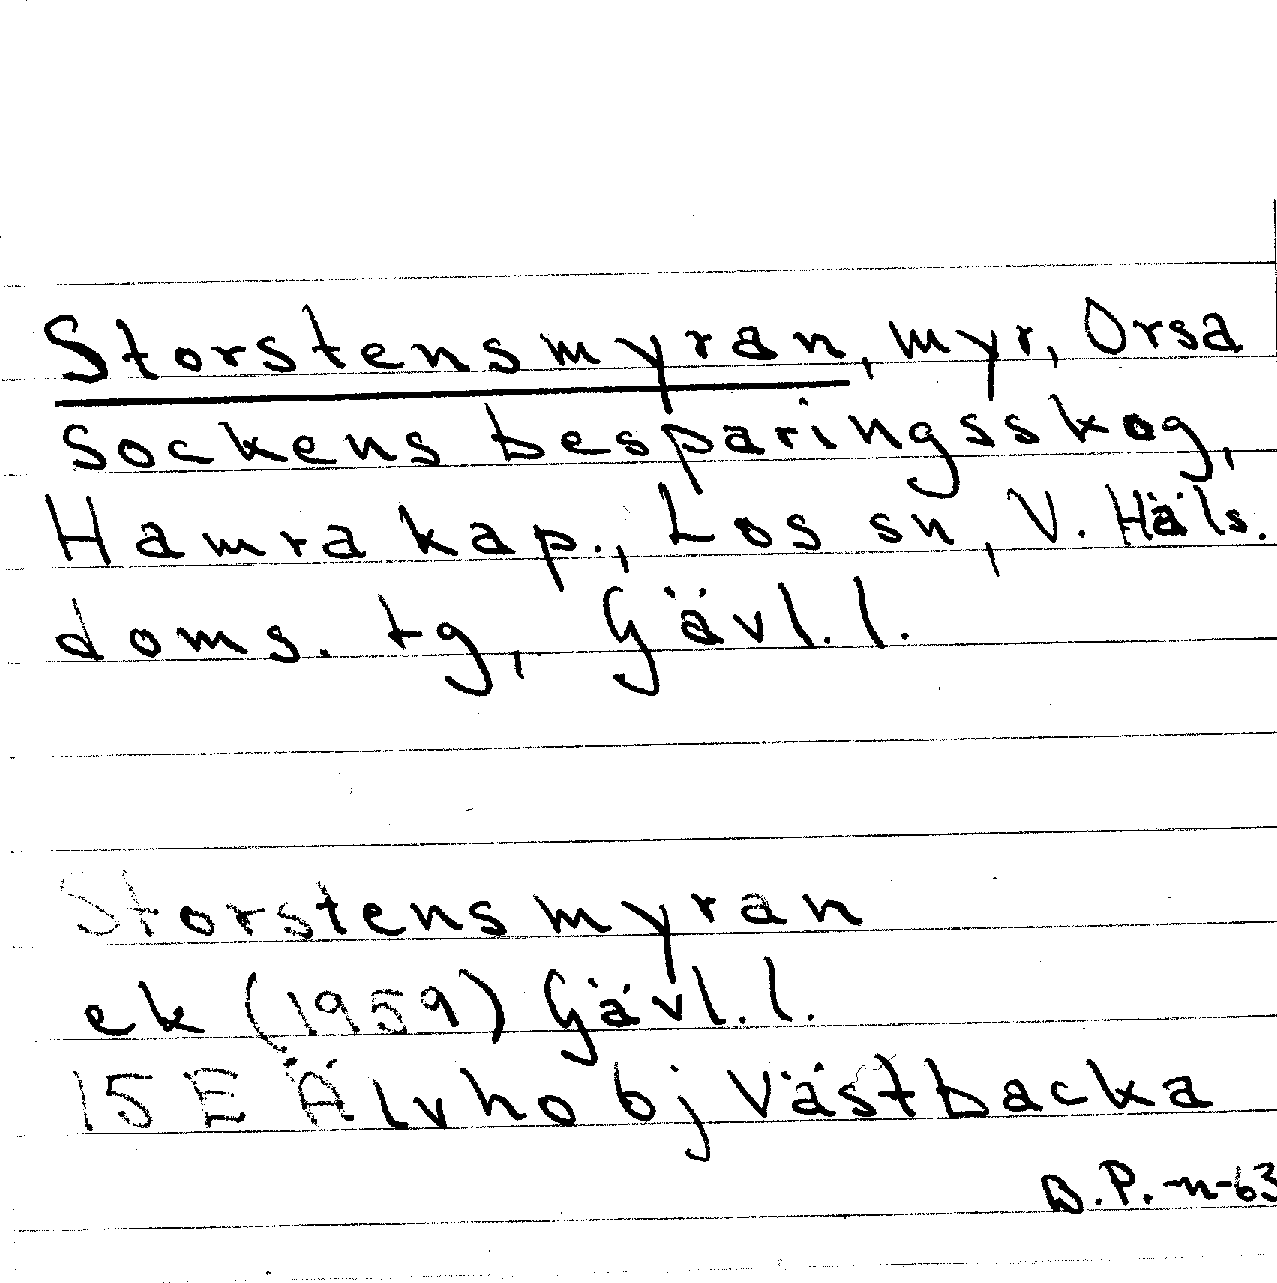 Storstensmyran, myr, Orsa
Sockens besparingsskog,
Hamra kap., Los sn, V. Häls.
doms. tg, Gävl. l.
Storstensmyran
ek (1959) Gävl. l.
15 E Älvho 6j Västbacka
D.P. -n-63